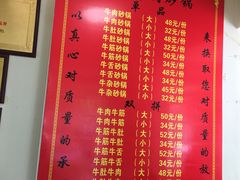 砂锅
单品
牛肉砂锅（大）48元/份
牛肉砂锅（小）32元/份
牛肚砂锅（大）48元/份
牛肚砂锅（小）32元/份
牛筋砂锅（大）48元/份
牛筋砂锅（小）32元/份
牛舌砂锅（大）48元/份
牛舌砂锅（小）32元/份
牛杂砂锅（大）45元/份
牛杂砂锅（小）32元/份
双拼
牛肉牛筋（大）50元/份
牛肉牛筋（小）34元/份
牛筋牛肚（大）52元/份
牛筋牛肚（小）34元/份
牛筋牛舌（大）52元/份
牛筋牛舌（小）34元/份
牛肉牛舌（大）50元/份
以真心对质量的承
来换取您对质量的放